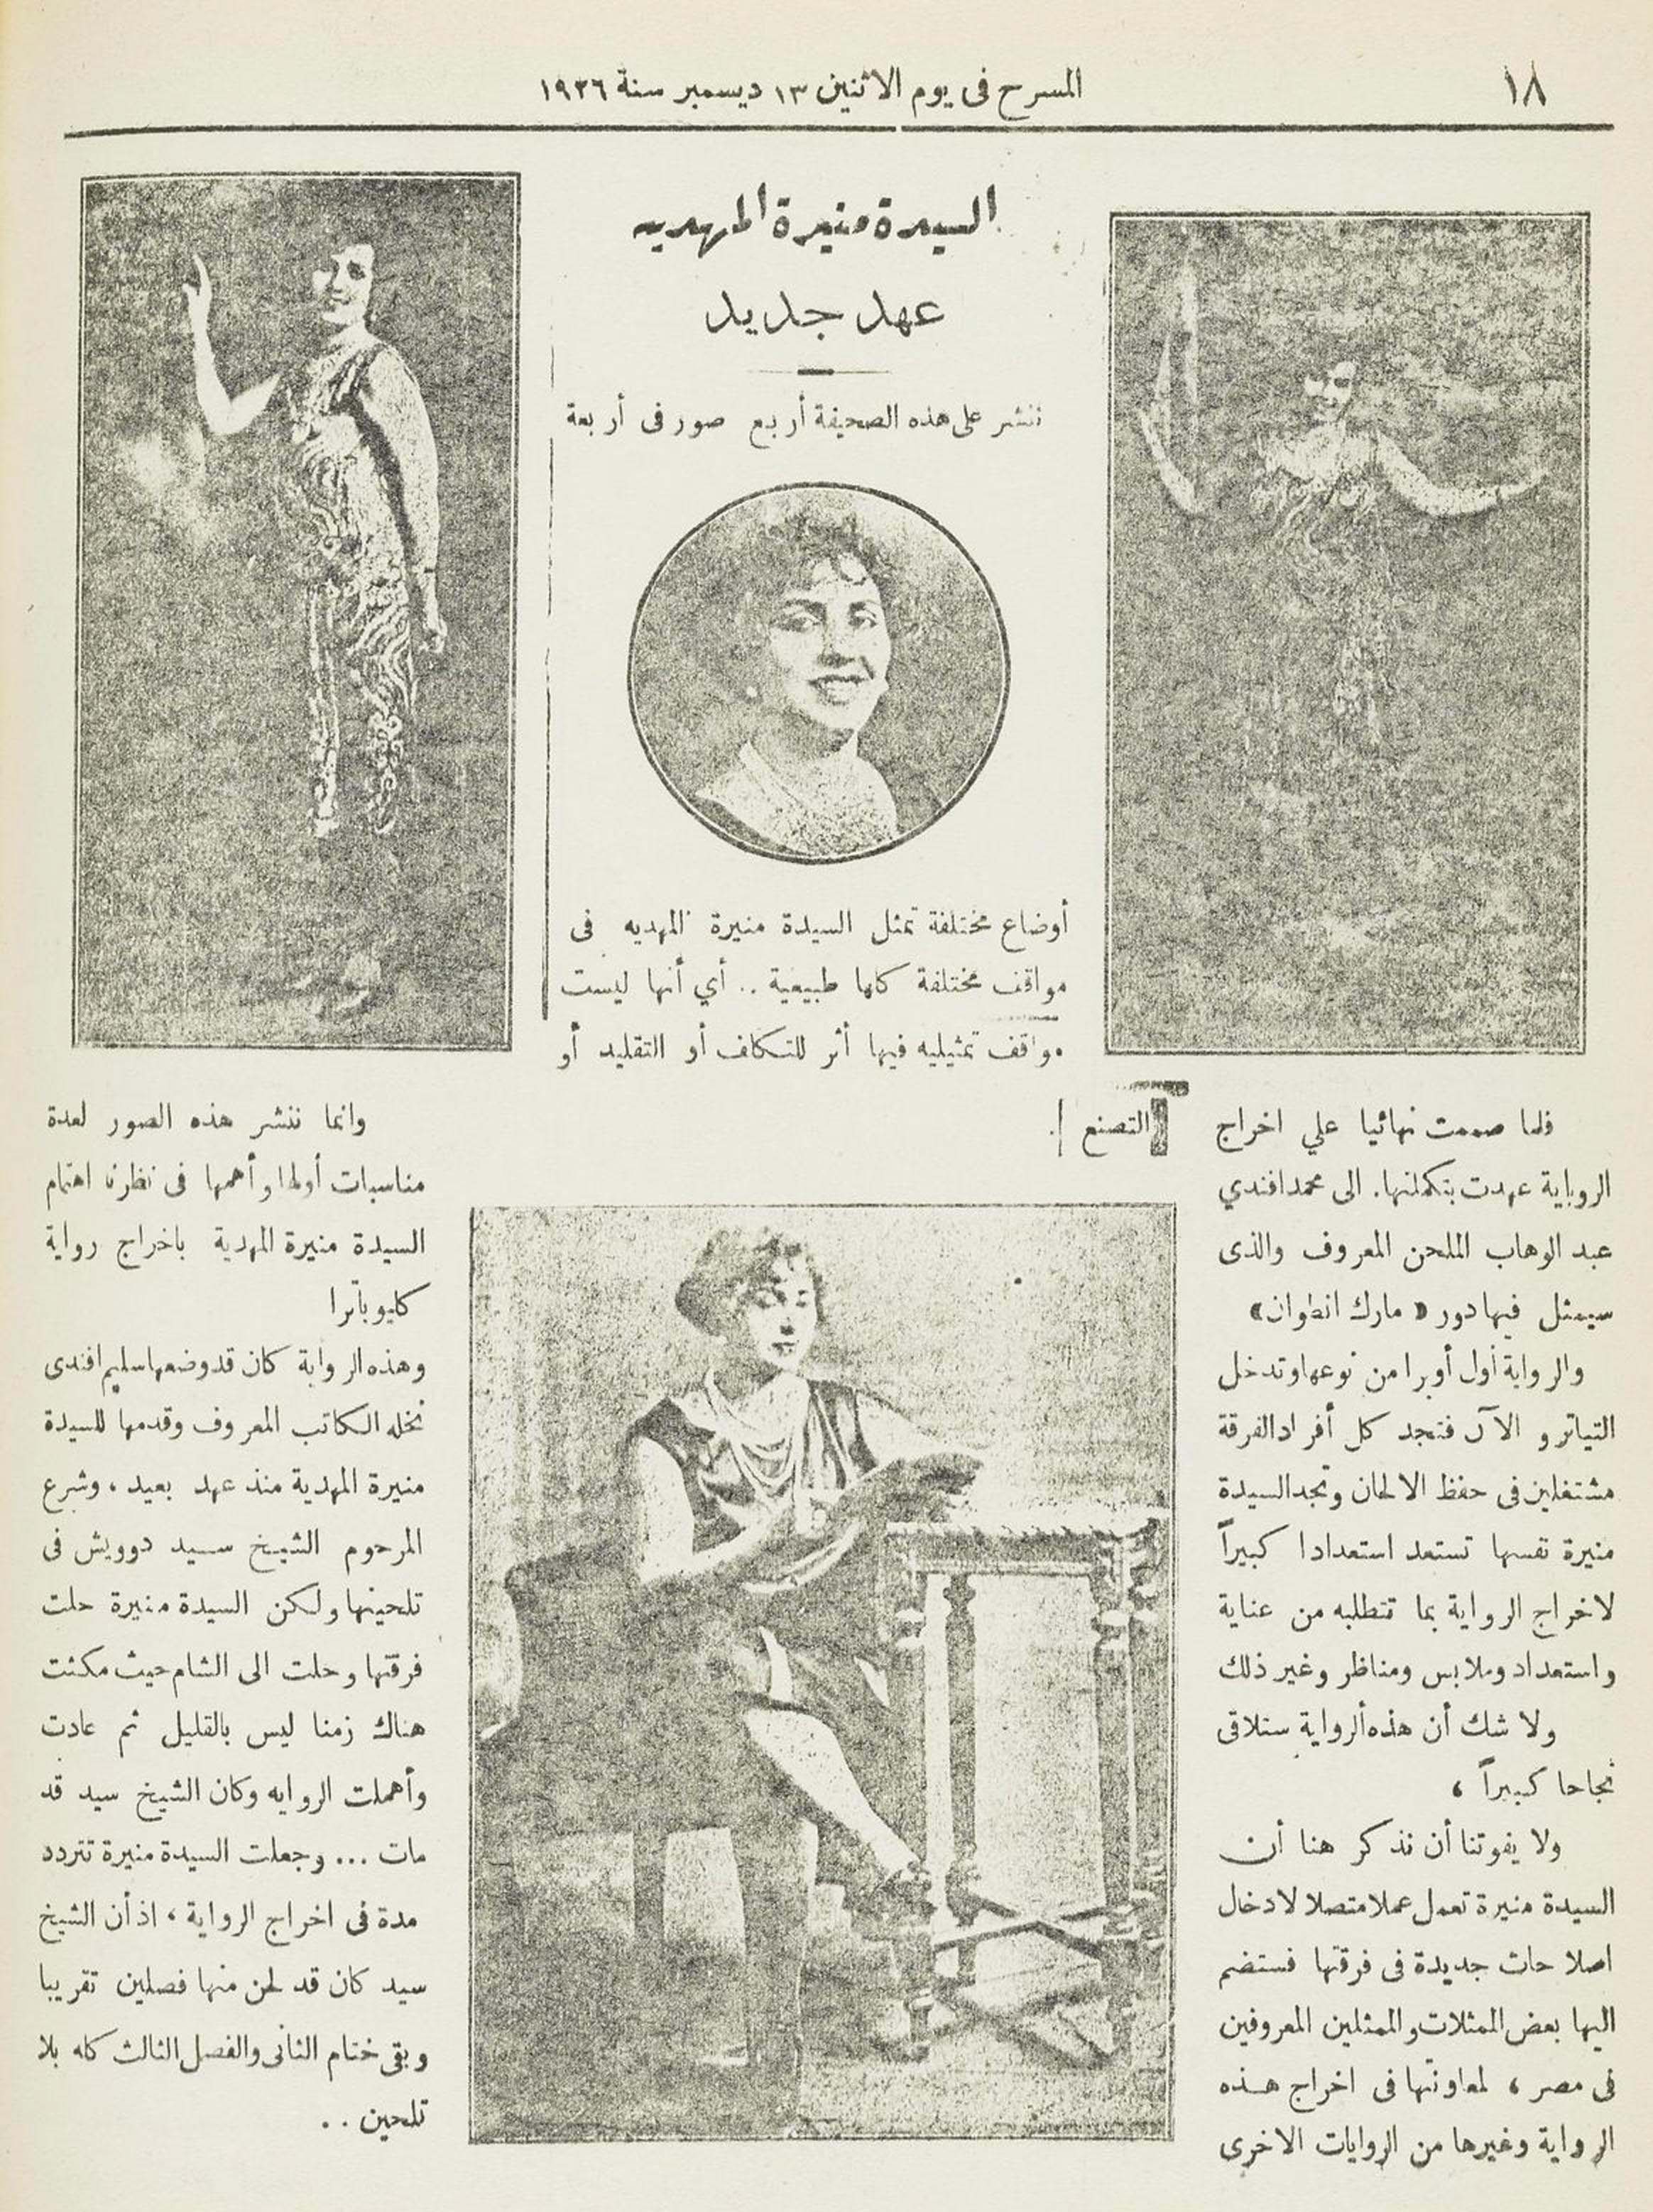 ١٨
المسرح فى يوم الاثنين ١٣ ديسمبر سنة ١٩٢٦
السيدة منيرة المهديه
عهد جديد
ننشر على هذه الصحيفة أربع صور فى أربعة
أوضاع مختلفة تمثل السيدة منيرة المهديه فى
مواقف مختلفة كلها طبيعية .. أي أنها ليست
مواقف تمثيليه فيها أثر للتكلف أو التقليد أو
التصنع .
وانما ننشر هذه الصور لعدة
مناسبات أولها وأهمها فى نظرنا اهتمام
السيدة منيرة المهدية باخراج رواية
كليوباترا
وهذه الرواية كان قد وضعها سليم افندى
نخله الكاتب المعروف وقدمها للسيدة
منيرة المهدية منذ عهد بعيد ، وشرع
المرحوم الشيخ سيد دوويش فى
تلحينها ولكن السيدة منيرة حلت
فرقتها وحلت الى الشام حيث مكثت
هناك زمنا ليس بالقليل ثم عادت
وأهملت الروايه وكان الشيخ سيد قد
مات ... وجعلت السيدة منيرة تتردد
مدة فى اخراج الرواية ، اذ أن الشيخ
سيد كان قد لحن منها فصلين تقريبا
وبقى ختام الثانى والفصل الثالث كله بلا
تلحين ..
فلما صممت نهائيا علي اخراج
الرواية عهدت بتكملتها. الى محمد افندي
عبد الوهاب الملحن المعروف والذى
سيمثل فيها دور « مارك انطوان »
والرواية أول أوبرا من نوعها وتدخل
التياترو الآن فتجد كل أفراد الفرقة
مشتغلين فى حفظ الالحان وتجد السيدة
منيرة نفسها تستعد استعدادا كبيراً
لاخراج الرواية بما تتطلبه من عناية
واستعداد وملابس ومناظر وغير ذلك
ولا شك أن هذه الرواية ستلاقى
نجاحا كبيراً ،
ولا يفوتنا أن نذكر هنا أن
السيدة منيرة تعمل عملا متصلا لادخال
اصلاحات جديدة فى فرقتها فستضم
اليها بعض الممثلات والممثلين المعروفين
فى مصر ، لمعاونتها فى اخراج هذه
الرواية وغيرها من الروايات الاخرى